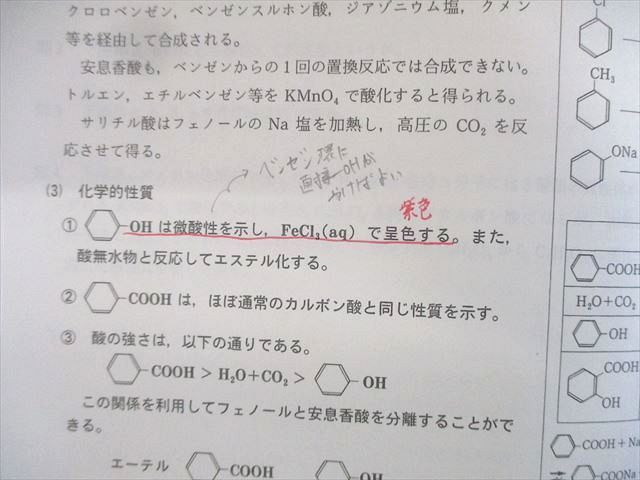 クロロベンゼン，ベンゼンスルホン酸，ジアゾニウム塩，クメン
等を経由して合成される。
安息香酸も，ベンゼンからの1回の置換反応では合成できない。
トルエン，エチルベンゼン等を KMnO₄ で酸化すると得られる。
サリチル酸はフェノールの Na 塩を加熱し，高圧の CO₂ を反
応させて得る。
ベンゼン環に
直接-OHが
(3) 化学的性質
紫色
① -OH は微酸性を示し，FeCl₃(aq) で呈色する。また，
酸無水物と反応してエステル化する。
② -COOH は，ほぼ通常のカルボン酸と同じ性質を示す。
③ 酸の強さは，以下の通りである。
-COOH > H₂O+CO₂ > -OH
この関係を利用してフェノールと安息香酸を分離することがで
きる。
エーテル -COOH -OH
Cl
CH₃
ONa
-COOH
H₂O+CO₂
-OH
COOH
OH
-COOH + Na
-COONa